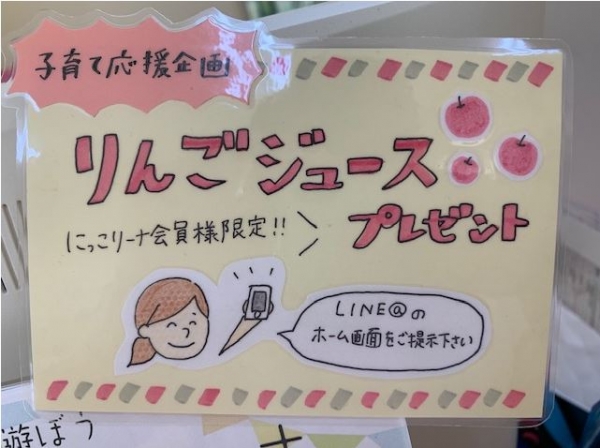 子育て応援企画
りんごジュース
にっこリーナ会員様限定!!
プレゼント
LINE@の
ホーム画面をご提示下さい
遊ぼう